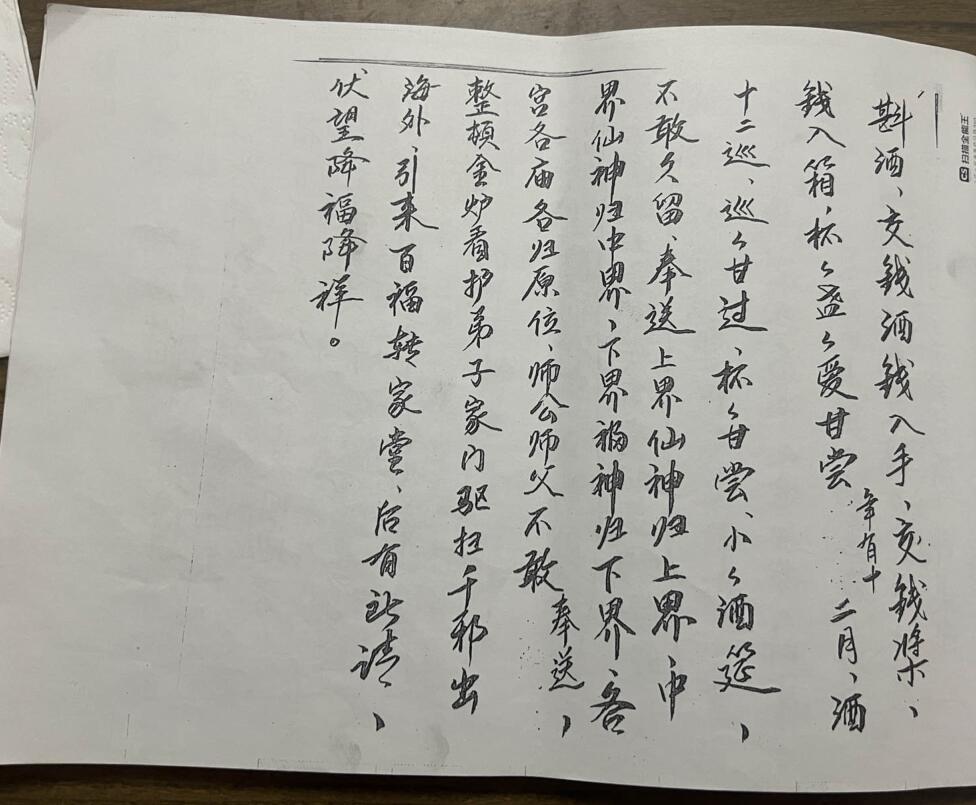 斟酒、交钱酒钱入手、交钱将来、
钱入箱、杯々盏々爱甘尝年有十二月、酒
十二巡、巡々甘过、杯々甘尝、小々酒筵、
不敢久留、奉送上界仙神归上界、中
界仙神归中界、下界福神归下界、各
宫各庙各归原位、师公师父不敢奉送、
整顿金炉看护弟子家门驱扫千邪出
海外、引来百福转家堂、后有所请、
伏望降福降祥。
CS 扫描全能王